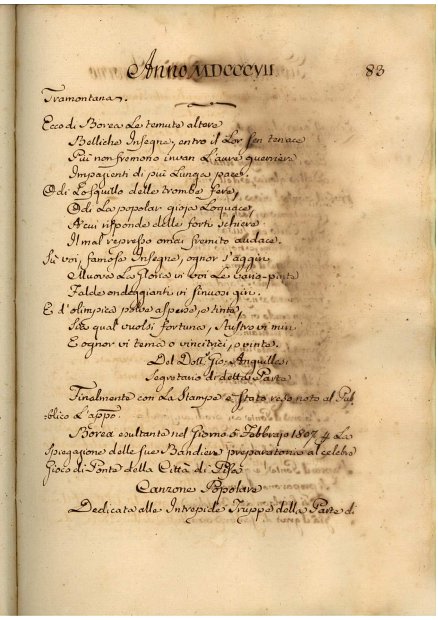 Anno MDCCCVII.
83
Tramontana.
Ecco di Borea Le temute altere
Belliche Insegne, entro il Lor sen tenace
Più non fremono invan L'aure guerriere
Impazienti di più Lunga pace.
Odi Lo squillo delle trombe fere,
Odi La popolar gioja Loquace,
A cui risponde delle forti schiere
Il mal represso omai fremito audace.
Su voi, famose Insegne, ognor s'aggiri
Muova La Gloria vi voi Le
Falde ondeggianti in sinuosi giri.
E d'olimpica polve asperse, e tinte,
Sia qual vuolsi fortuna, Austro vi miri
E ognor vi tema o vincitrici, o vinte.
Del Dott. Gio. Anguillesi
Segretario di detta Parte
Finalmente con La Stampa è stato reso noto al Pub-
blico L'appo.
Borea esultante nel Giorno 5 Febbrajo 1807 La
Spiegazione delle sue Bandiere preparatoria al celebre
Gioco di Ponte della Città di Pisa
Canzone Popolare
Dedicata alle Intrepide Truppe della Parte di